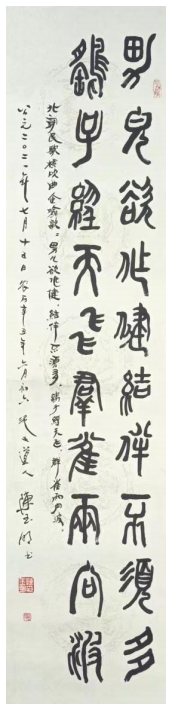 男兒欲作健結伴不須多
鷂子經天飛羣雀兩向波
北朝民歌橫吹曲企喻歌。男兒欲作健,結伴不須多,鷂子經天飛,群雀兩向波。
公元二〇二一年七月十五日農曆辛丑年六月初六